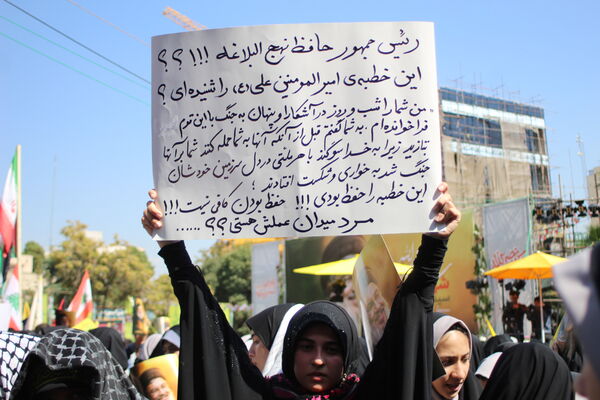 رئیس جمهور حافظ نهج البلاغه !!!؟؟
این خطبه‌ی امیرالمومنین علی(ع) را شنیده‌ای ؟
من شما را شب و روز در آشکارا و پنهان به جنگ با این قوم
فراخوانده‌ام . به شما گفتم قبل از آنکه آنها به شما حمله کنند شما به آنها
بتازید زیرا به خدا سوگند هر ملتی در دل سرزمین خودشان
جنگ شد به خواری و شکست افتادند ؛
این خطبه را حفظ بودی !!! حفظ بودن کافی نیست !!!
مرد میدان عملش هستی ؟؟ ......